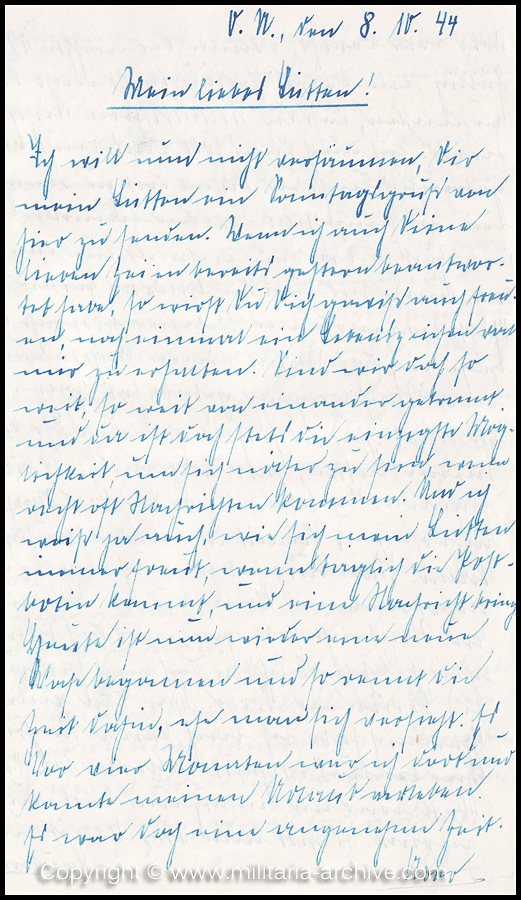 O. U., den 8. 10. 44
Mein liebes Lütten!
Ich will nun nicht versäumen, Dir
mein Lütten ein Sonntagsgruß von
hier zu senden. Wenn ich auch Deine
lieben Zeilen bereits gestern beantwor-
tet habe, so wirst Du Dich gewiß auch freu-
en, noch einmal ein Lebenszeichen von
mir zu erhalten. Sind wir doch so
weit, so weit von einander getrennt
und da ist doch stets die einzigste Mög-
lichkeit, um sich näher zu sein, wenn
recht oft Nachrichten kommen. Und ich
weiß ja auch, wie sich mein Lütten
immer freut, wenn täglich die Post-
botin kommt, und eine Nachricht bringt
Heute ist nun wieder eine neue
Woche begonnen und so rennt die
Zeit dahin, ehe man sich versieht.
Vor vier Monaten war ich dort und
konnte meinen Urlaub verleben.
Es war doch eine angenehme Zeit.
Copyright © www.militaria-archive.com